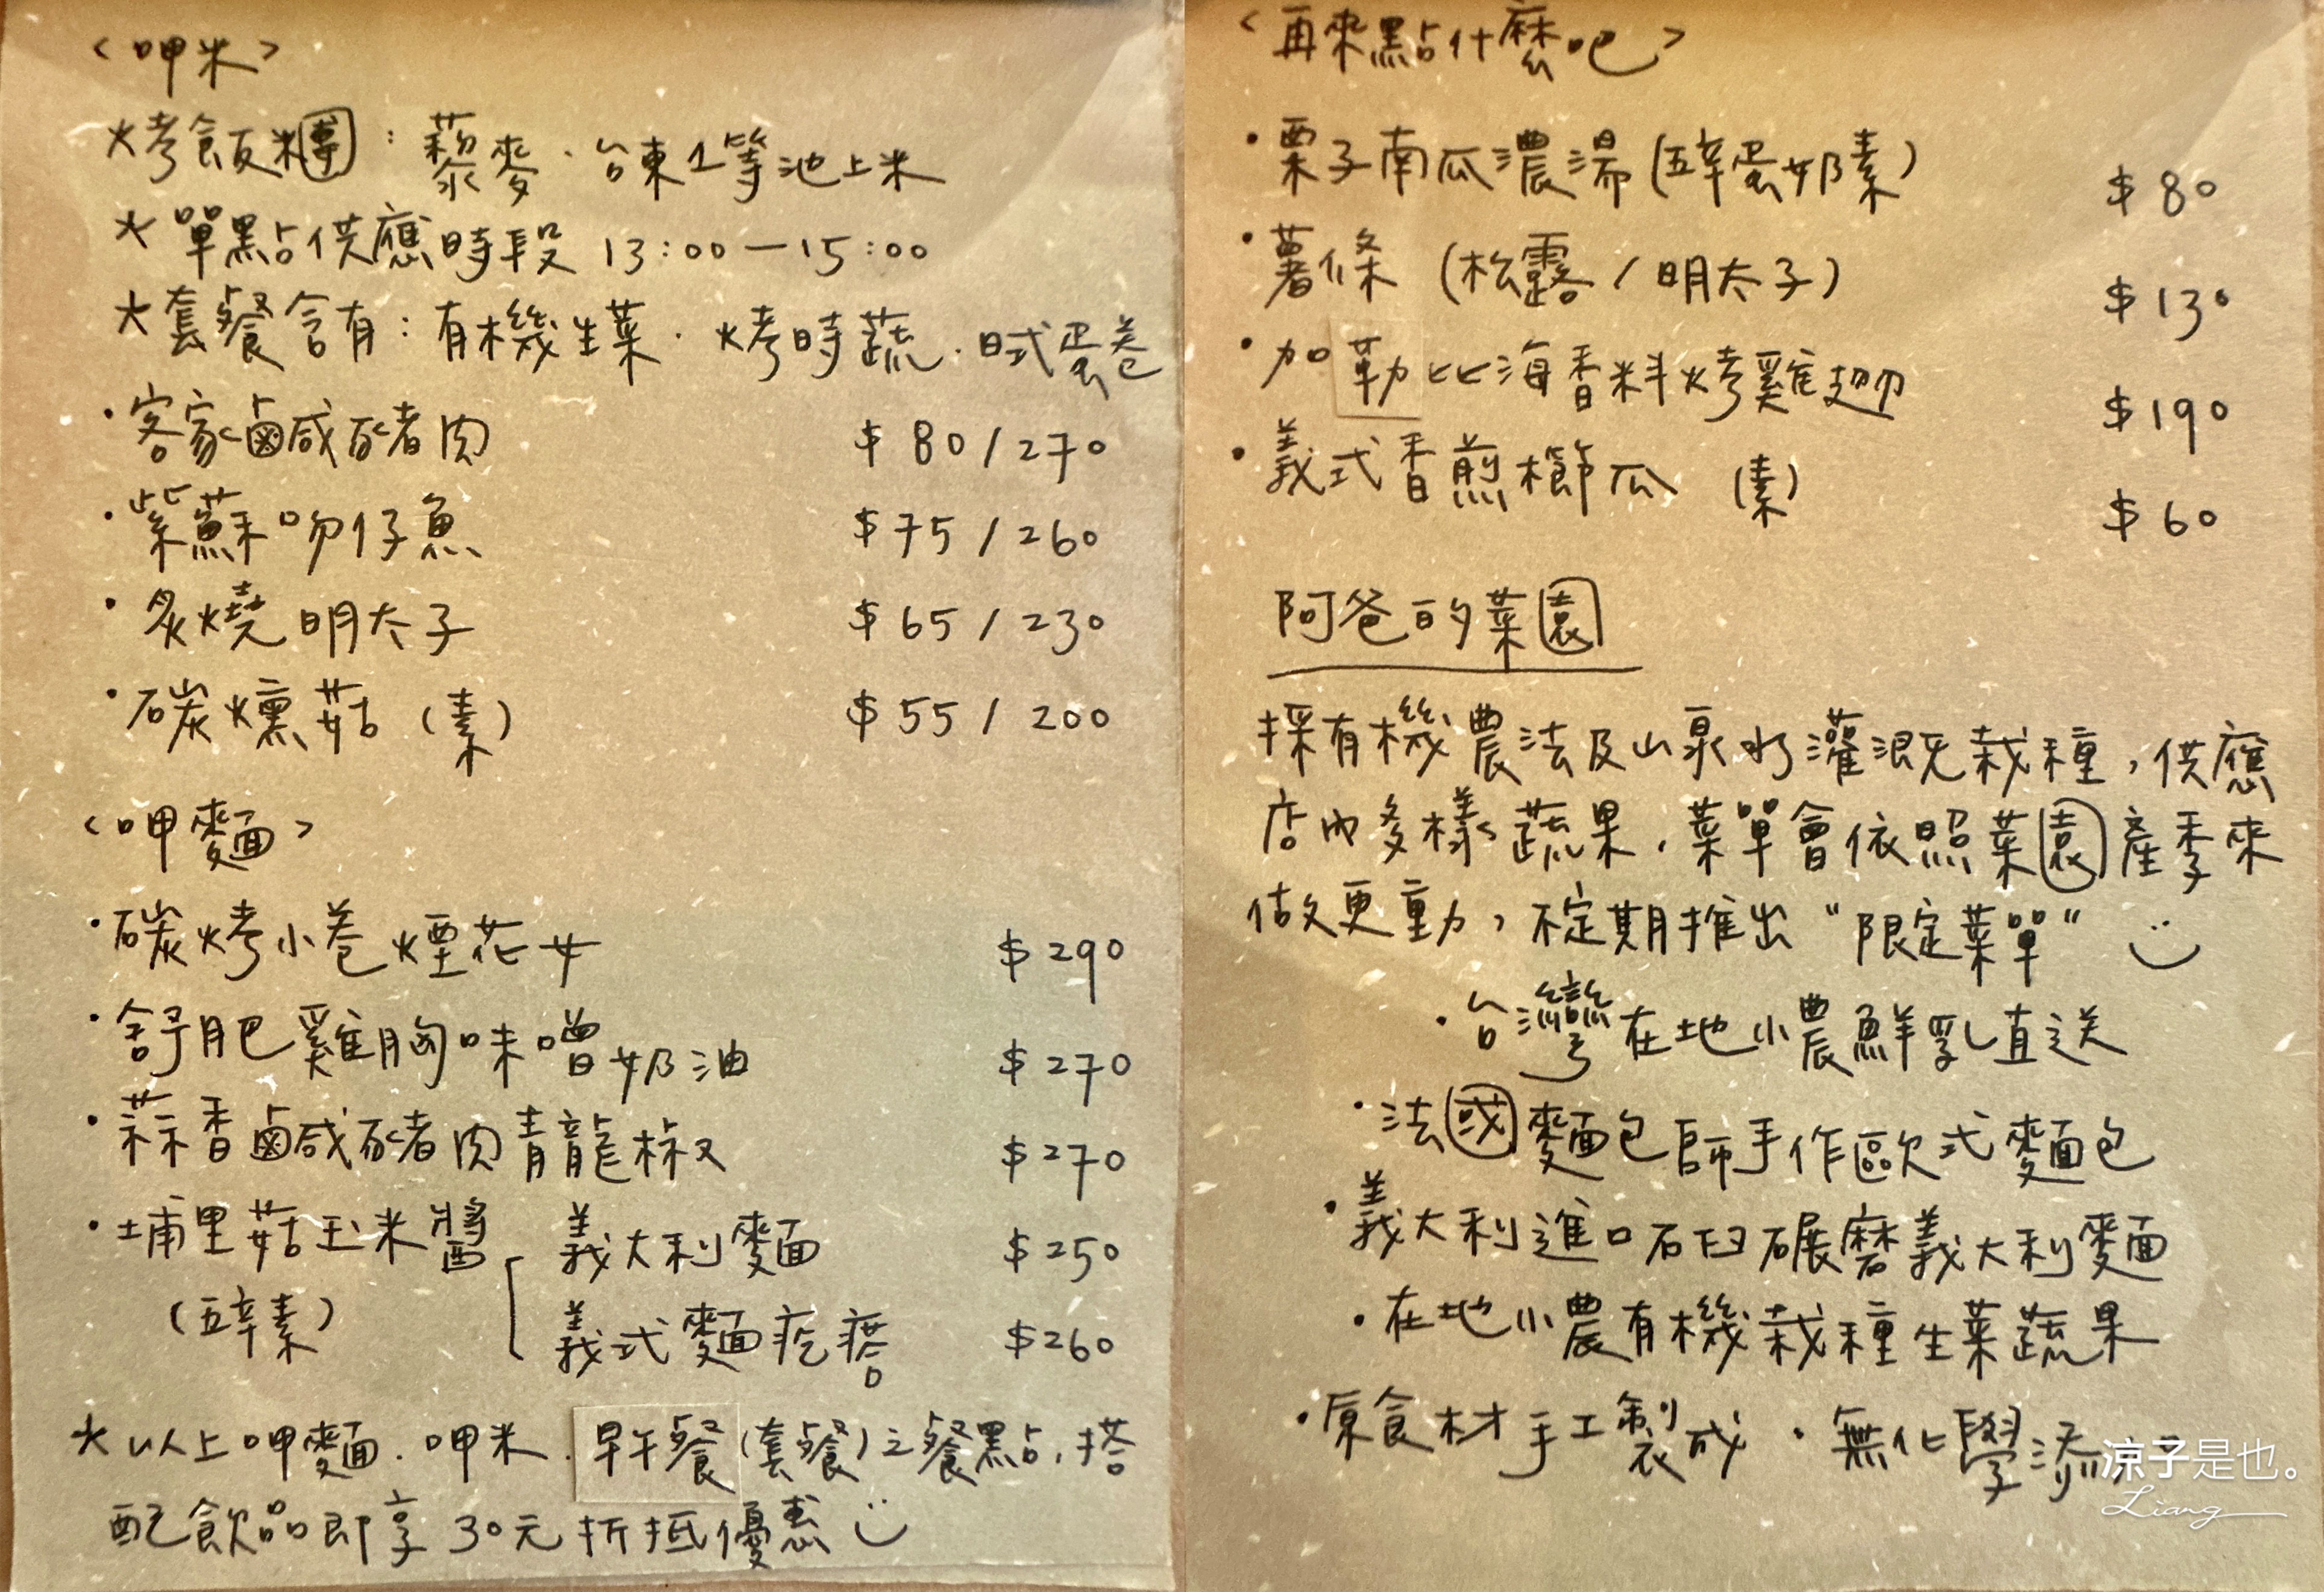 <呷米>
*烤飯糰：藜麥．台東1等池上米
*單點供應時段 13:00－15:00
*套餐含有：有機生菜．烤時蔬．日式蛋卷
・客家鹵咸豬肉 $80/270
・紫蘇吻仔魚 $75/260
・炙燒明太子 $65/230
・碳燻菇（素） $55/200
<呷麵>
・碳烤小卷煙花女 $290
・舒肥雞胸味噌奶油 $270
・蒜香鹵咸豬肉青龍椒 $270
・埔里菇玉米醬 義大利麵 $250
（五辛素） 義式麵疙瘩 $260
*以上呷麵．呷米．早午餐(套餐)之餐點，搭
配飲品即享30元折抵優惠
<再來點什麼吧>
・栗子南瓜濃湯(五辛蛋奶素) $80
・薯條（松露/明太子） $130
・加勒比海香料烤雞翅 $190
・義式香煎櫛瓜（素） $60
阿爸的菜園
採有機農法及山泉水灌溉栽種，供應
店內多樣蔬果，菜單會依照菜園產季來
做更動，不定期推出“限定菜單”
・台灣在地小農鮮乳直送
・法國麵包師手作歐式麵包
・義大利進口石臼碾磨義大利麵
・在地小農有機栽種生菜蔬果
・原食材手工製成．無化學添
凉子是也。
Liang